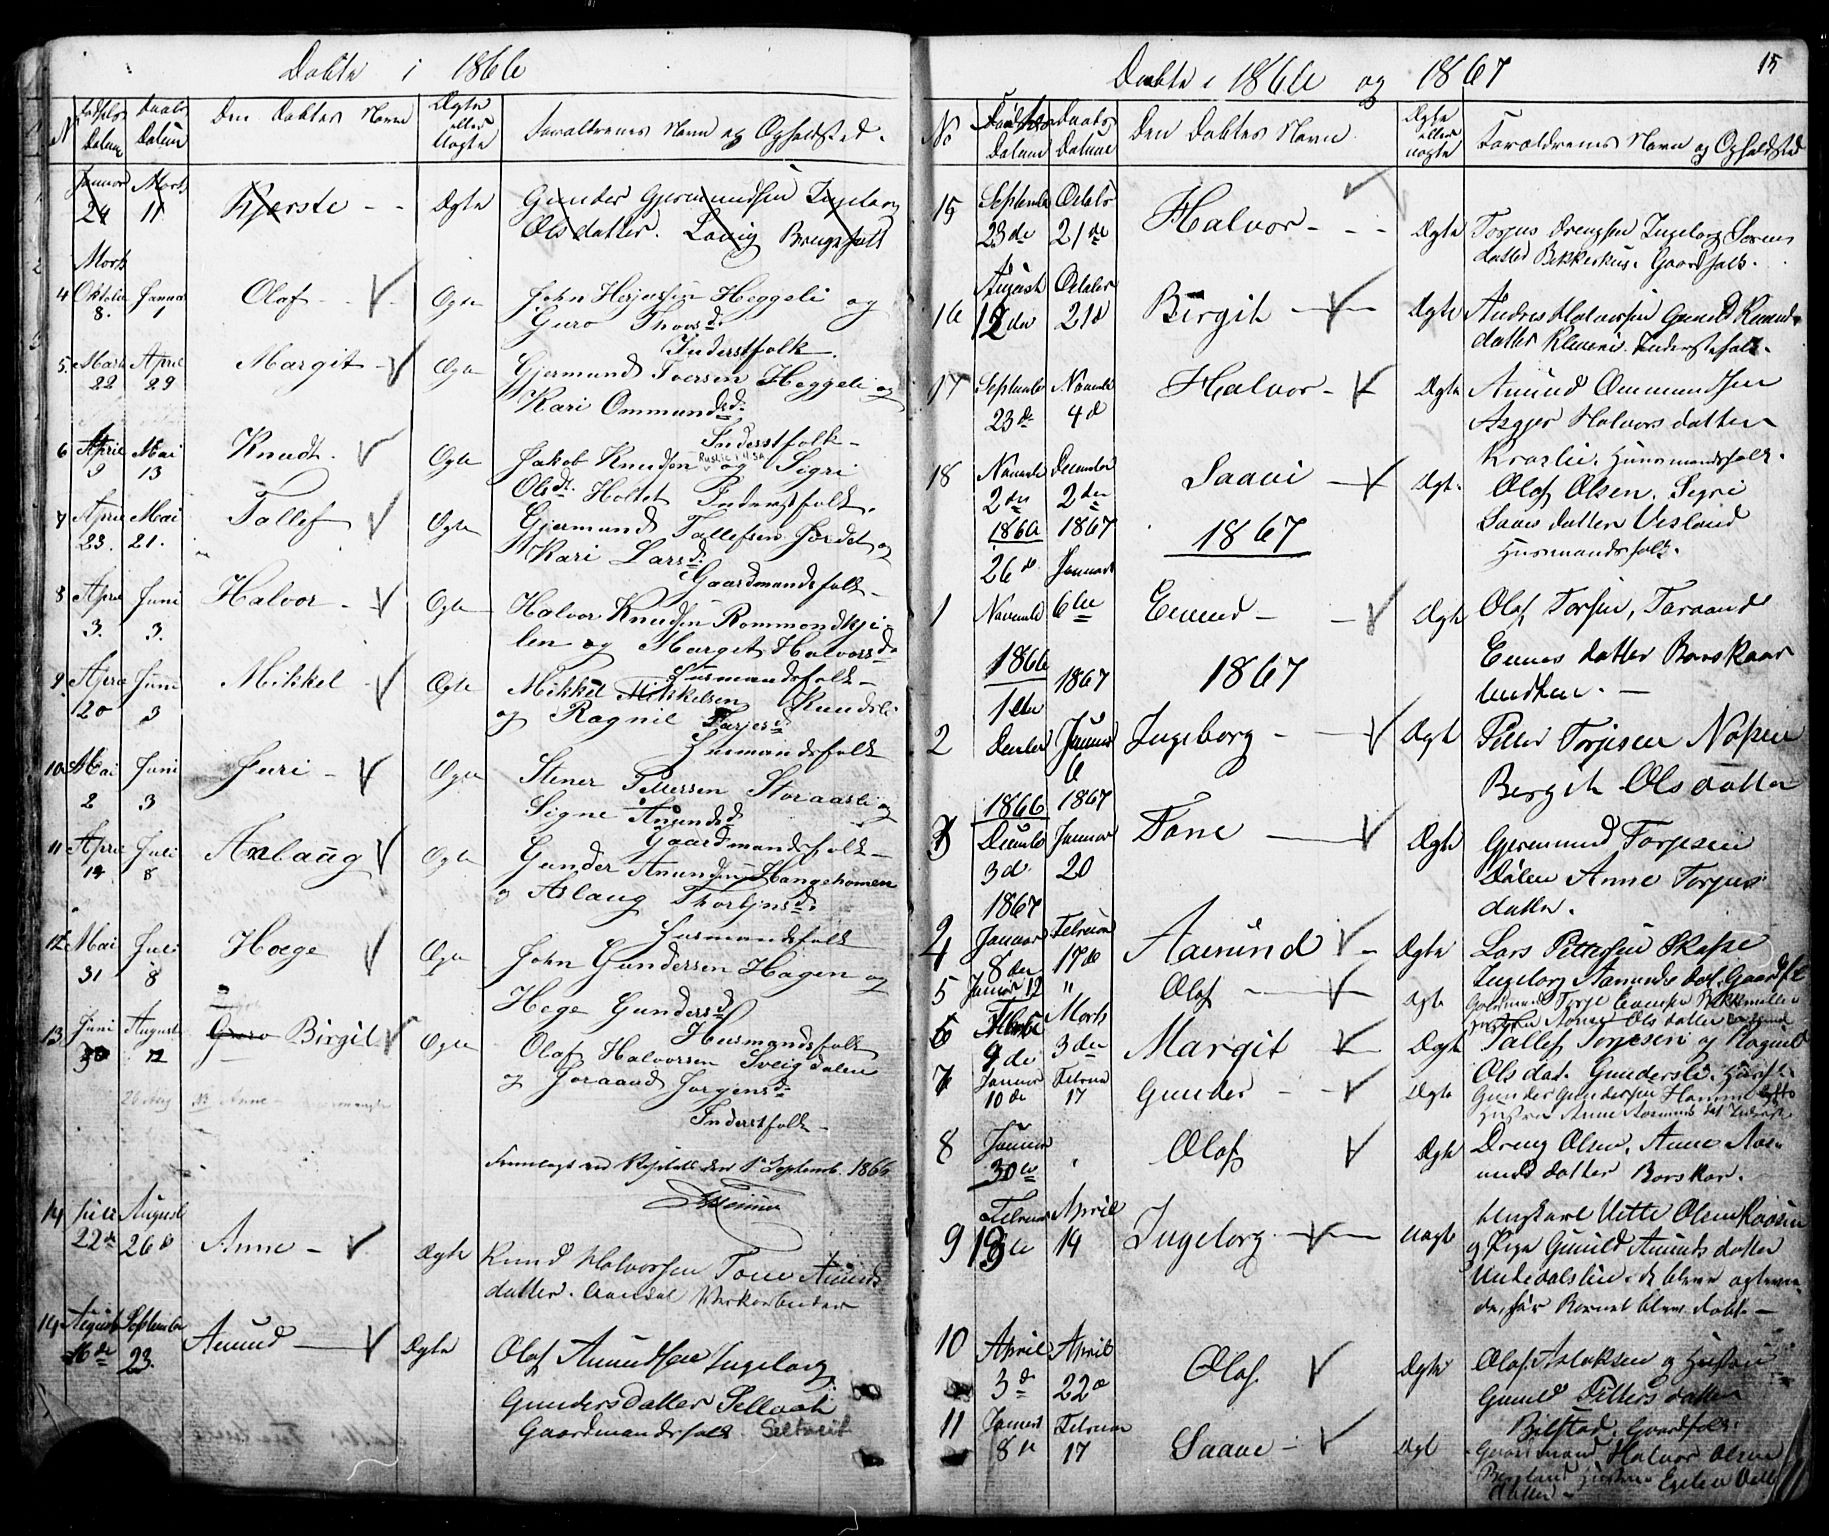 Døbte i 1866
No
Fødsels Datum
Daabs Datum
Den Døbtes Navn
Ægte eller Uægte
Forældrenes Navn og Opholdsted.
Januar 24
Marts 11
Kjerste - -
Ægte
Gunder Gjermundsen Ingeborg
Olsdatter. Brugsfolk
Marts
4 Oktober 8.
Januar 1
Olaf
Ægte
John Herjusen Heggeli og
Guro Thovsd.
Inderstfolk.
5. Marts 22
April 29
Margit
Ægte
Gjermund Iversen Heggeli og
Kari Ommundsd.
Inderstfolk
6 April 9
Mai 13
Knudt.
Ægte
Jakob Knudsen og Sigri
Olsdt. Holtet Inderstfolk.
7 April 23.
Mai 21.
Tallef
Ægte
Gjermund Tallefsen Jordet og
Kari Larsd.
Gaardmandsfolk
8 April 3.
Juni 3.
Halvor
Ægte
Halvor Knudsen Rommondkji-
len og Marget Halvorsd
Husmandsfolk
9 April 20
Juni 3
Mikkel
Ægte
Mikkel Mikkelsen Kundsli
og Ragnil Tarjesd
Husmandsfolk
10 Mai 2
Juni 3
Juri
Ægte
Stener Pettersen Storaasli og
Signe Amundsd
Gaardmandsfolk
11 April 14
Juli 8
Aslaug
Ægte
Gunder Amundsen Hangehomen
og Aslaug Thorgusd.
Husmandsfolk
12 Mai 31
Juli 8
Hoege
Ægte
John Gundersen Hagen og
Hege Gundersd
Husmandsfolk
13. Juni 30
August 12
Guro Birgit
Ægte
Olaf Halvorsen Sveigdalen
og Joraand Jorgensd
Inderstfolk
26 Aug Anne
September 1866
14 Juli 22de
August 26d
Anne -
Ægte
Knud Halvorsen Tone Amunds
datter. Aamdal Værkarbeider
14 August 16de
September 23.
Amund
Ægte
Olaf Amundsen Ingeborg
Gunders datter Seltveit
Gaardmandsfolk Seltveit
15
Døbte i 1866 og 1867
No
Fødsels Datum
Daabs Datum
Den Døbtes Navn.
Ægte eller uægte
Forældrenes Navn og Opholdsted
15 September 23de
October 21de
Halvor - - -
Ægte
Torjus Drengsen Ingeborg Sørens
datter Bekkerhus. Gaardfolk.
16 August 12de
October 21d
Birgit
Ægte
Andres Halvorsen Gunild Knuds-
datter Kleveni. Inderstefolk.
17 September 23de
November 4d
Halvor
Ægte
Amund Ommundsen
Asgjer Halvorsdatter
Kraslie. Huusmandsfolk.
18 November 2den
December 2den
Saavi
Ægt.
Olaf Olsen. Sigri
Saaves datter Vesland
Husmandsfolk.
1866
1867
1867
26de
Januar
1 November
6te
Eivind -
Ægte
Olaf Torsen, Taraand
Eivinds datter Borskaar
1866
1867
1867
1ste
2 December
Januar 6
Ingeborg -
Ægte
Petter Torjesen Napen
Birgit Olsdatter
1866
1867
3 December 3d
Januar 20
Tone
Ægte
Gjermund Torjesen
Dalen Anne Torjus
datter.
1867
4 Januar 8de
Februar 17de
Aamund
Ægte
Lars Pettersen Skafse
Ingeborg Aamunds dat. Gaardf.
5 Januar 12
"
Olaf
Ægte
Gaardmand Torje Bekkemellen
Anne Olsdatter
6 Februar 9de
Marts 3den
Margit
Ægte
Tallef Torjesen og Ragnild
Olsdat. Gundersli. Huusf.
7 Januar 10de
Februar 17
Gunder
Ægte
Gunder Gundersen Hommelgt.
Hustru Anne Aamunds dat. Inderst.
8 Januar 30te
"
Olaf
Ægte
Dreng Olsen. Anne Aas-
munds datter Borskar.
9 Februar 19de
April 14
Ingeborg.
Uægte
Ungkarl Vetle Olsen Raasen
og Pige Gunild Amunds datter
Undedalslien. de bleve ægtevie-
de, før Barnet blev døbt. -
10 April 3d
April 22d
Olaf.
Ægte
Olaf Aslaksen og Hustru
Gunild Petters datter
Bilstad, Gaardfolk.
11 Januar 8de
Februar 17
Saave
Ægt
Gaardmand Halvor Olsen
Berland Hustru
datter -